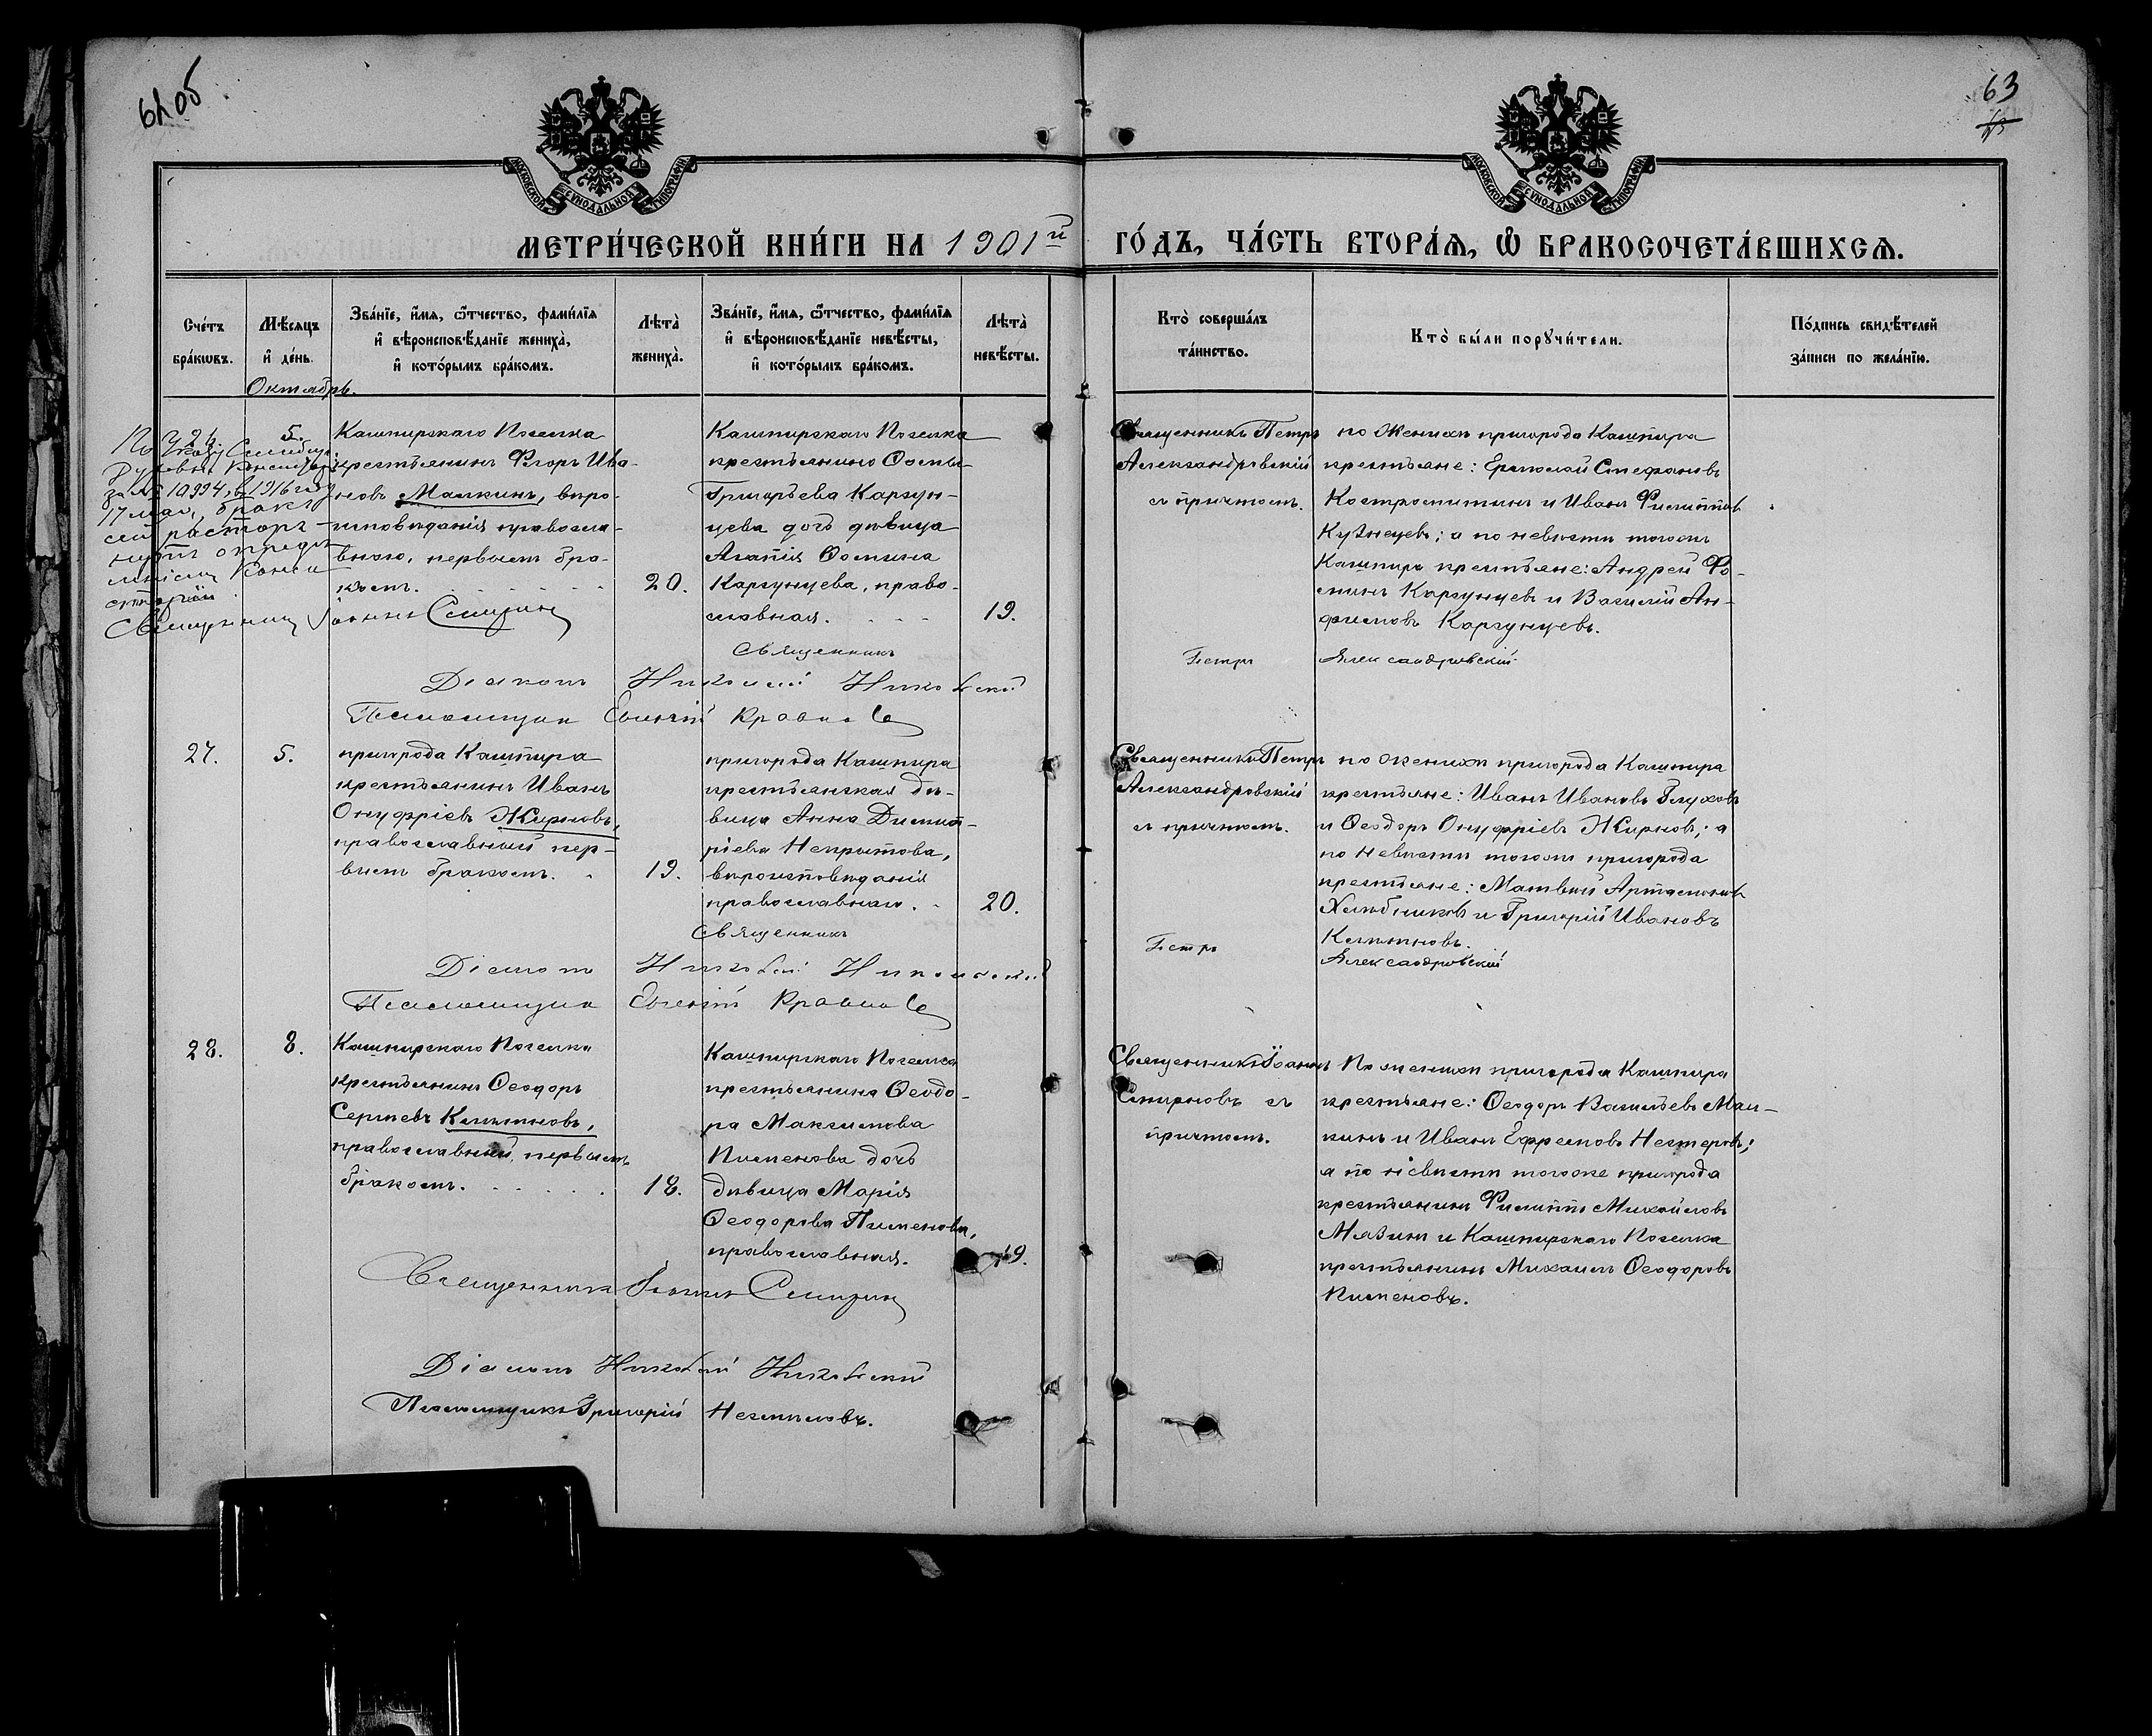 62об
63
МОСКОВСКОЙ СѴНОДАЛЬНОЙ ТИПОГРАФІИ
МОСКОВСКОЙ СѴНОДАЛЬНОЙ ТИПОГРАФІИ
МЕТРИ́ЧЕСКОЙ КНИ́ГИ НА 1901й
ГО́ДЪ, ЧА́СТЬ ВТОРА́Ѧ, Ѡ҆ БРАКОСОЧЕТА́ВШИХСѦ.
Сче́тъ
бра́кѡвъ.
Мѣ́сяцъ
и҆ де́нь.
Октябрь.
Зва́нїе, и҆́мѧ, ѻ҆́тчество, фами́лїѧ
и҆ вѣроисповѣ́данїе жениха̀,
и҆ кото́рымъ бра́комъ.
Лѣта̀
жениха̀.
Зва́нїе, и҆́мѧ, ѻ҆́тчество, фами́лїѧ
и҆ вѣроисповѣ́данїе невѣ́сты,
и҆ кото́рымъ бра́комъ.
Лѣта̀
невѣ́сты.
Кто̀ соверша́лъ
та́инство.
Кто̀ бы́ли порꙋчи́тели.
По́дпись свидѣ́телей
за́писи по жела́нїю.
26.
5.
По Указу Симбир.
Духовн. Консистор.
за № 19994, в 1916 году
17 мая, бракъ
сей расторг-
нутъ опредѣ
леніем Конси
сторіи
Священникъ Іоаннъ Смирнов
Кашпирскаго Поселка
крестьянинъ Ѳегоръ Ива-
новъ Малкинъ, вѣро-
исповѣданія правосла-
внаго, первымъ бра-
комъ.
20.
Кашпирскаго Поселка
крестьянина Ѳомы
Григорьева Каргун-
цева дочь дѣвица
Агапія Ѳомина
Каргунцева, право-
славная.
19.
Священникъ Петръ
Александровскій
съ причтомъ.
по женихѣ пригорода Кашпира
крестьяне: Ермолай Стефановъ
Костромитинъ и Иванъ Филипповъ
Кузнецовъ; а по невѣстѣ тогоже
Кашпира крестьяне: Андрей Ѳо-
минъ Каргунцевъ и Василій Ан-
фимовъ Каргунцевъ.
Священникъ Петръ Александровскій
Діаконъ Николай Никольскій
Псаломщикъ Евгеній Кравков
27.
5.
пригорода Кашпира
крестьянинъ Иванъ
Онуфріевъ Жирновъ,
православный пер-
вымъ бракомъ.
19.
пригорода Кашпира
крестьянская дѣ-
вица Анна Димит-
ріева
вѣроисповѣданія
православнаго.
20.
Священникъ Петръ
Александровскій
съ причтомъ.
по женихѣ пригорода Кашпира
крестьяне: Иванъ Ивановъ Глуховъ
и Ѳеодоръ Онуфріевъ Жирновъ; а
по невѣстѣ тогоже пригорода
крестьяне: Матвѣй Артамоновъ
Хлѣбниковъ и Григорій Ивановъ
Священникъ Петръ Александровскій
Діаконъ Николай Никольскій
Псаломщикъ Евгеній Кравков
28.
8.
Кашпирскаго Поселка
крестьянинъ Ѳеодоръ
Сергѣевъ
православный, первымъ
бракомъ.
18.
Кашпирскаго Поселка
крестьянина Ѳеодо-
ра Максимова
Пименова дочь
дѣвица Марія
Ѳеодорова Пименова,
православная.
19.
Священникъ Іоаннъ
Смирновъ съ
причтомъ.
По женихѣ пригорода Кашпира
крестьяне: Ѳеодоръ Васильевъ Мал-
кинъ и Иванъ Ефремовъ Нестеровъ;
а по невѣстѣ тогоже пригорода
крестьянинъ Филиппъ Михайловъ
Мязинъ и Кашпирскаго Поселка
крестьянинъ Михаилъ Ѳеодоровъ
Пименовъ.
Священникъ Іоаннъ Смирнов
Діаконъ Николай Никольскій
Псаломщикъ Григорій